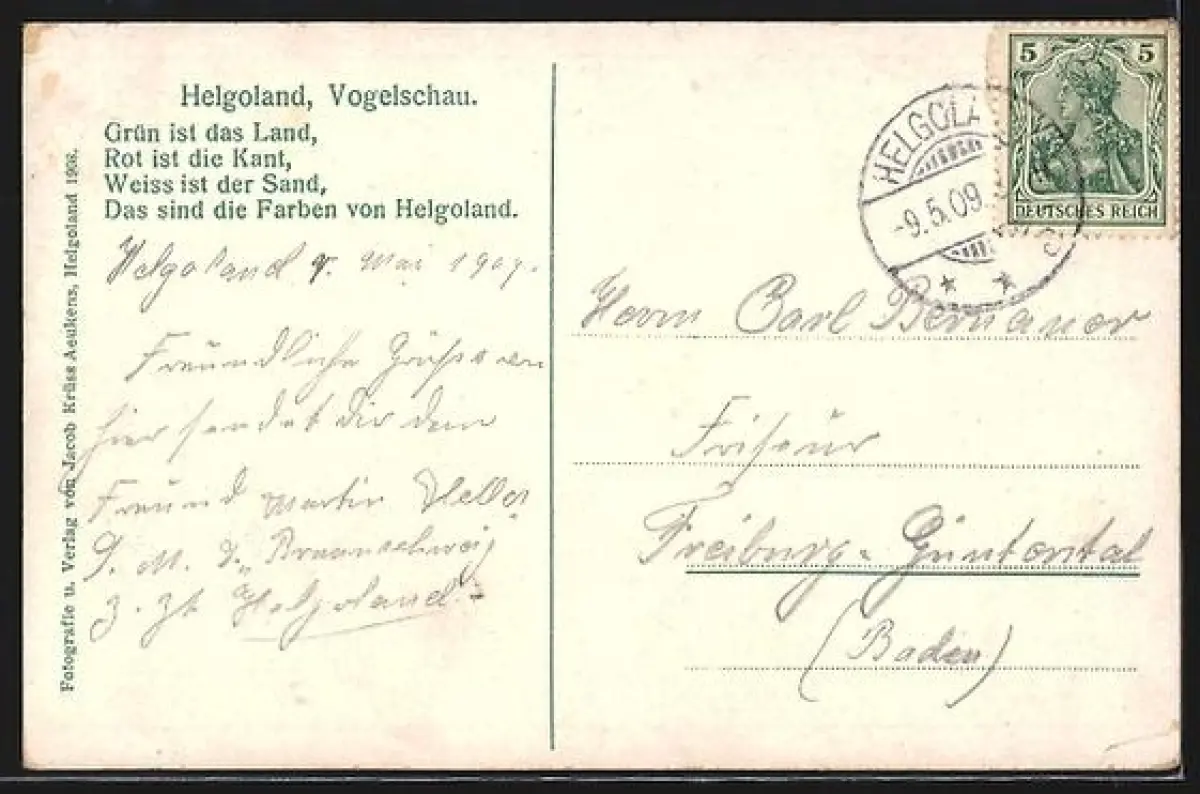 Helgoland, Vogelschau.
Grün ist das Land,
Rot ist die Kant,
Weiss ist der Sand,
Das sind die Farben von Helgoland.
Helgoland 9. Mai 1909.
Freundliche Grüsse von
hier sendet dir dein
Freund Martin
S. M. S. „Braunschweig
z. Zt. Helgoland
Fotografie u. Verlag von Jacob Krüss Aeukens, Helgoland 1908.
5 5
DEUTSCHES REICH
HELGOLA
-9.5.09
Herrn Carl Bernauer
Friseur
Freiburg-Günterstal
(Baden)